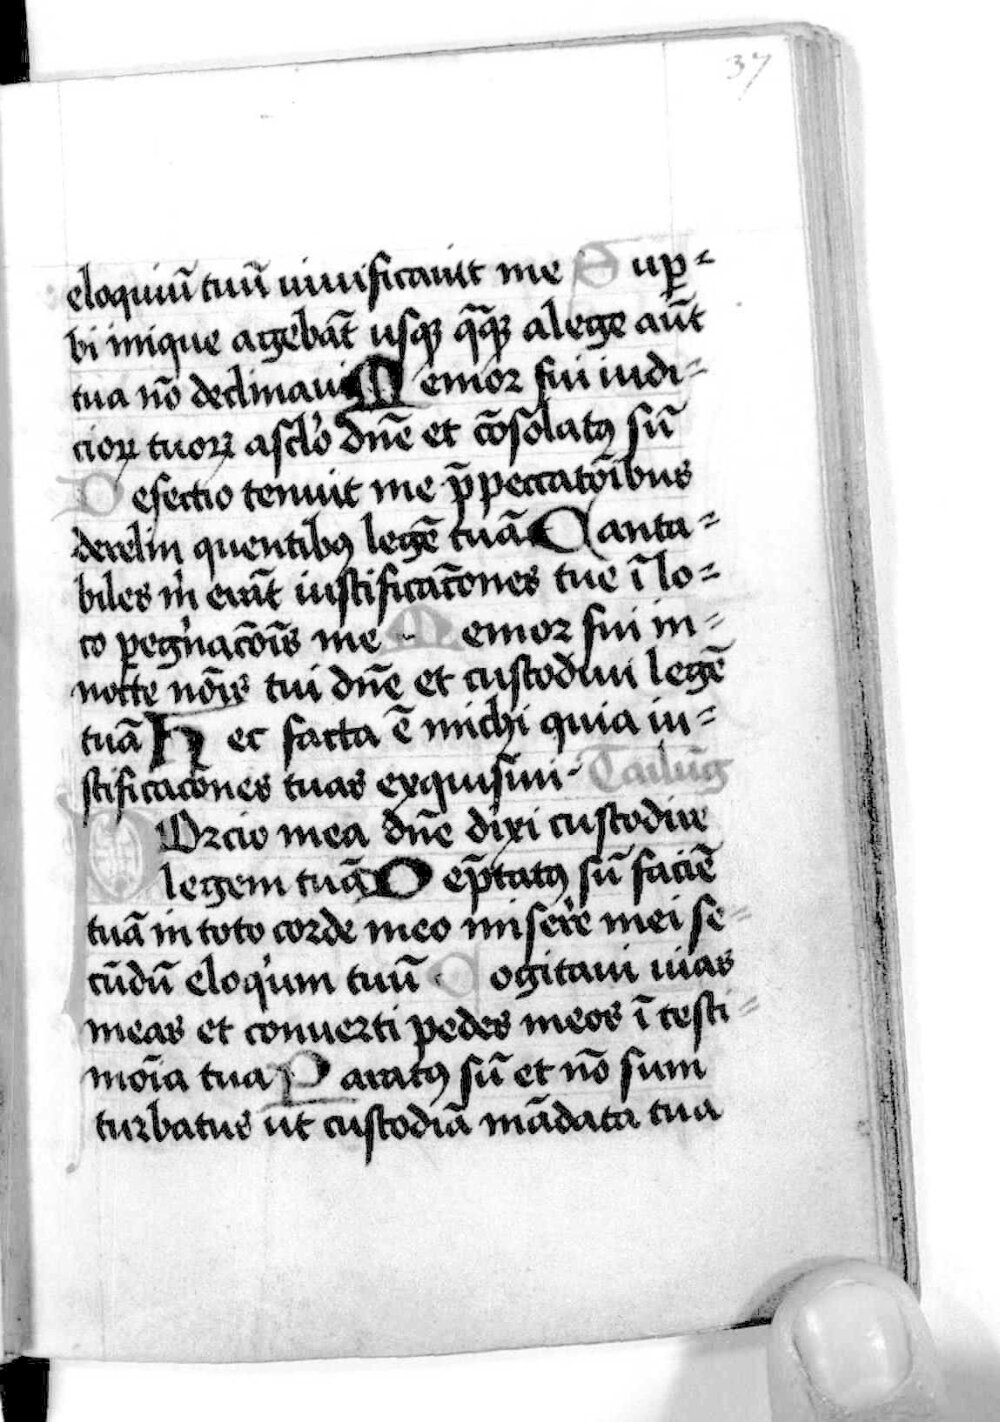 37
eloquiū tuū uiuificauit me Sup̱⸗
bi inique agebāt usq̨ q̄q̨ a lege aūt
tua nō declinaui Memor fui iudi⸗
cioꝝ tuoꝝ asclo̓ dn̄e et cōsolatꝯ sū
Defectio tenuit me p̄ peccatōibus
derelin quentibꝯ legē tuā Canta⸗
biles m̓ erāt iustificac̄ones tue ī lo⸗
co peg̓nac̄oīs me Memor fui in⸗
nocte nōīs tui dn̄e et custodiui legē
tuā Hec facta ē michi quia iu⸗
stificac̄ones tuas exquisiui
Porcio mea dn̄e dixi custodire
legem tuā Dep̄catꝯ sū faciē
tuā in toto corde meo misere̓ mei se⸗
cūdū eloq̓um tuū Cogitaui uias
meas et conuerti pedes meos ī testi⸗
mōia tua Paratꝯ sū et nō sum
turbatus ut custodiā mādata tua